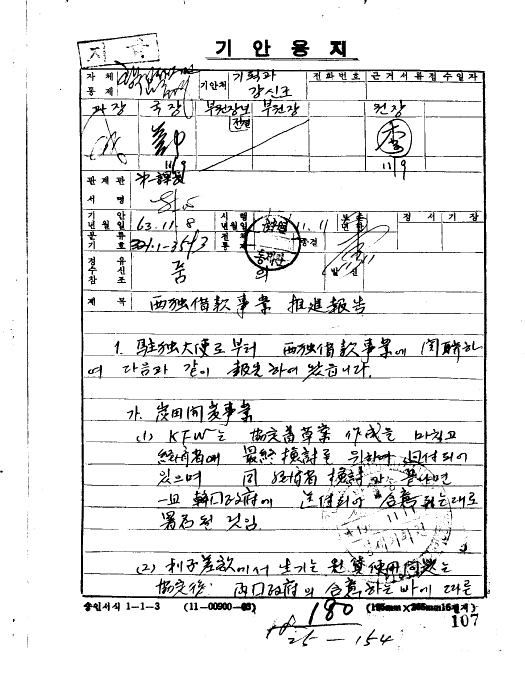 기안용지
자체통제 기안처 기획과 전화번호 근거서류접수일자
과장 국장 부원장보 부원장 원장
전결
11/9 11/9
관계관서명
기안년월일 63. 11. 8 시행년월일 11. 11 정서 기장
분류기호 통제 종결
경유수신참조 품의 발신
제목 西独借款事業 推進報告
1. 駐独大使로부터 西独借款事業에 関聯하
여 다음과 같이 報告하여 왔습니다.
가. 炭田開発事業
(1) KFW는 協定書草案 作成을 마치고
経済省에 最終検討를 위하여 回付되어
있으며 同 経済省 検討가 끝나면
韓国政府에 送付되어 合意되는대로
署名될 것임
(2) 利子差欵에서 생기는 원貨使用問題는
協定後 両国政府의 合意하는 바에 따른
승인서식 1-1-3 (11-00900-03)
180
25-154
107